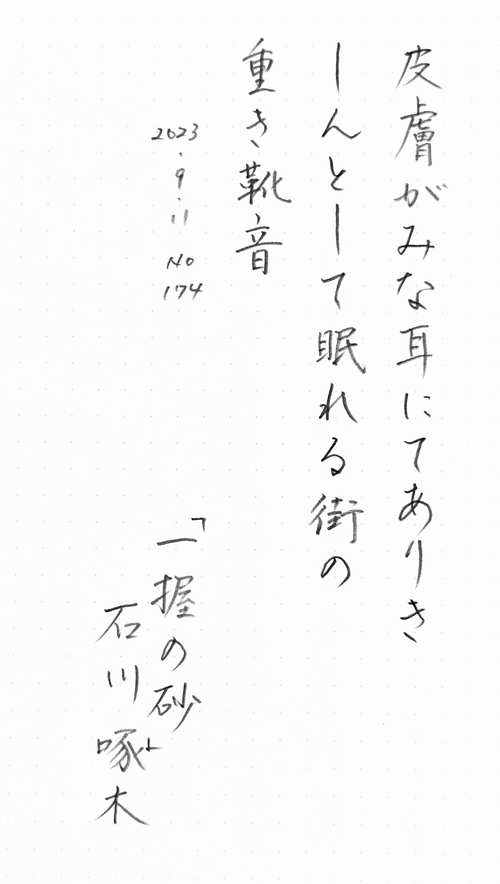 皮膚がみな耳にてありき
しんとして眠れる街の
重き靴音
2023
・
9
・
11
No
174
「一握の砂」
石川啄木